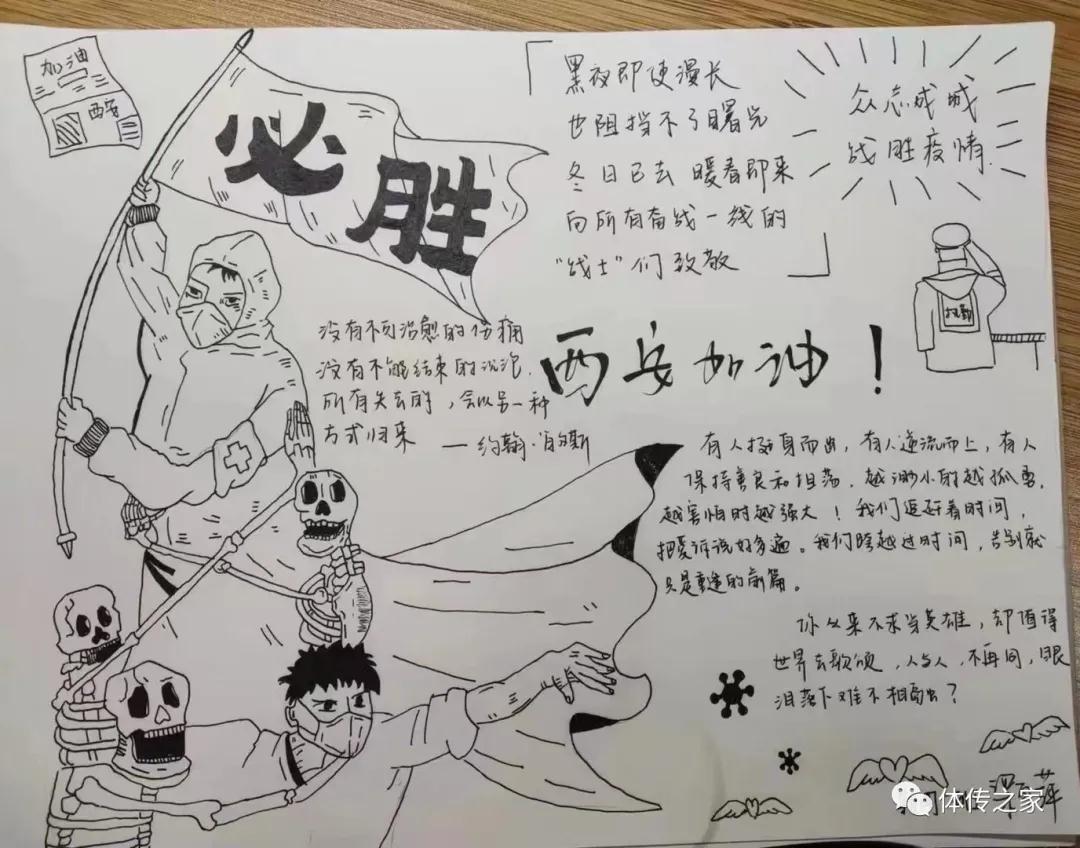 加油
西安
必
胜
黑夜即使漫长
也阻挡不了曙光
冬日已去 暖春即来
向所有奋战一线的
“战士”们致敬
众志成城
战胜疫情.
执勤
没有不可治愈的伤痛
没有不能结束的沉沦.
所有失去的，会以另一种
方式归来
— 约翰·肖尔斯
西安加油！
有人挺身而出，有人逆流而上，有人
保持善良和坦荡. 越渺小时越孤勇,
越害怕时越强大！我们追赶着时间，
把爱诉说好多遍。我们跨越过时间，告别就
只是重逢的前篇。
你从来不求当英雄，却值得
世界去歌颂，人与人，不再同，眼
泪落下难不相同？
体传之家
萍